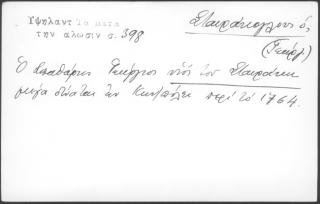 Υψηλαντ Τα μετα
την αλωσιν σ. 398
Σταυράκογλους ὁ,
(Γεώργ)
Ὁ Σπαθάρης Γεώργιος υἱὸς τοῦ Σταυράκη
μέγα δύναται ἐν Κων/πόλει περὶ τὸ 1764.